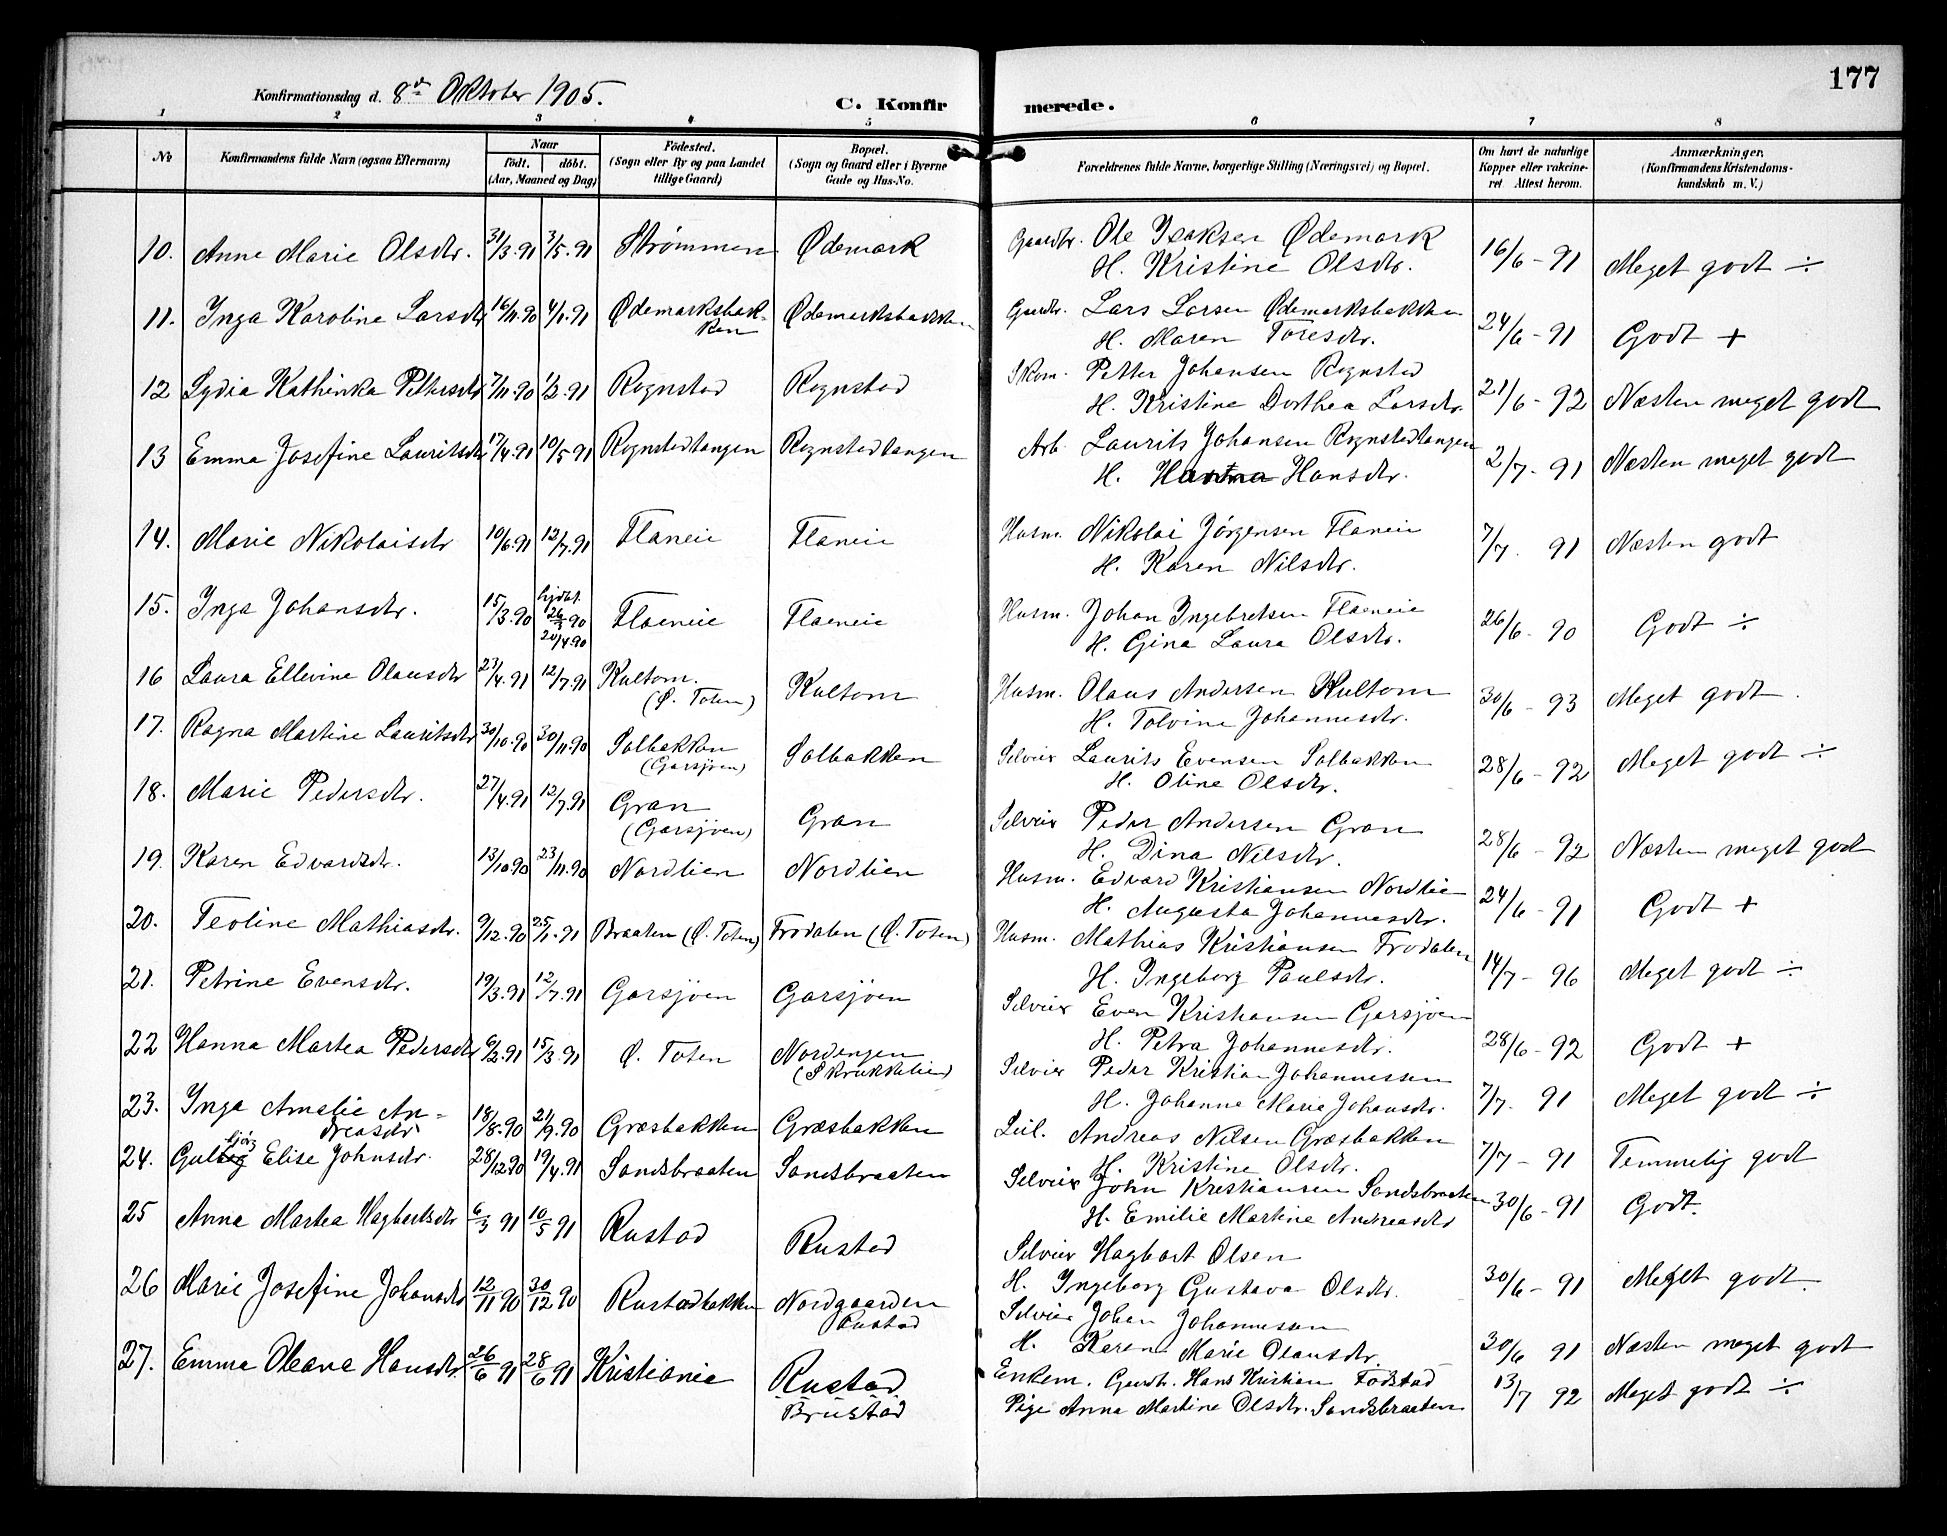 177
Konfirmationsdag d. 8de Oktober 1905.
C. Konfir merede.
1 2 3 4 5 6 7 8
No
Konfirmandens fulde Navn (ogsaa Efternavn)
Naar
födt. döbt.
(Aar, Maaned og Dag)
Födested.
(Sogn eller By og paa Landet
tillige Gaard)
Bopæl.
(Sogn og Gaard eller i Byerne
Gade og Hus-No.
Forældrenes fulde Navne, borgerlige Stilling (Næringsvei) og Bopæl.
Om havt de naturlige
Kopper eller vakcine-
ret Attest herom.
Anmærkninger,
(Konfirmandens Kristendoms-
kundskab m. V.)
10. Anne Marie Olsdtr. 31/3.91 3/5.91 Strømmen Ødemark Gaardbr. Ole Isaksen Ødemark 16/6 - 91 Meget godt ÷
H. Kristine Olsdtr.
11. Inga Karoline Larsdtr 16/11.90 4/1.91 Ødemarksbak-
ken Ødemarksbakken Gaardbr. Lars Larsen Ødemarksbakken 24/6 - 91 Godt +
H. Maren Toresdtr.
12 Lydia Kathinka Pettersdtr 7/11.90 1/2.91 Rognstad Rognstad Skom. Petter Johansen Rognstad 21/6 - 92 Næsten meget godt
H. Kristine Dorthea Larsdtr.
13 Emma Josefine Lauritsdtr 17/4.91 10/5.91 Rognstadtangen Rognstadtangen Arb. Laurits Johansen Rognstadtangen 2/7 - 91 Næsten meget godt
H. Hanna Hansdtr.
14. Marie Nikolaisdtr 10/6.91 12/7.91 Flaneie Flaneie Husm. Nikolai Jørgensen Flaneie 7/7. 91 Næsten godt
H. Karen Nilsdtr.
15. Inga Johansdtr. 15/3.90 hjdbt.
26/3 90
20/4.90 Flaeneie Flaeneie Husm. Johan Ingebretsen Flaeneie 26/6 - 90 Godt ÷
H. Gina Laura Olsdtr.
16 Laura Ellevine Olausdtr 23/4.91 12/7.91 Kultom.
(Ø. Toten) Kultom Husm. Olaus Andersen Kultom 30/6 - 93 Meget godt.
H. Tolvine Johannesdtr.
17. Ragna Martine Lauritsdtr 30/10.90 30/11.90 Solbakken
(Garsjøen) Solbakken Selveier Laurits Evensen Solbakken 28/6 - 92 Meget godt ÷
H. Oline Olsdtr.
18. Marie Pedersdtr. 27/4.91 12/7.91 Gran
(Garsjøen) Gran Selveier Peder Andersen Gran 28/6 - 92 Næsten meget godt
H. Dina Nilsdtr.
19. Karen Edvardsdtr. 13/10.90 23/11.90 Nordlien Nordlien Husm. Edvard Kristiansen Nordlie 24/6 - 91 Godt +
H. Augusta Johannesdtr.
20. Teoline Mathiasdtr. 9/12.90 25/1.91 Braaten (Ø. Toten) Frodalen (Ø. Toten) Husm. Mathias Kristiansen Frodalen 14/7 - 96 Meget godt ÷
H. Ingeborg Paulsdtr.
21. Petrine Evensdtr. 19/3.91 12/7.91 Garsjøen Garsjøen Selveier Even Kristiansen Garsjøen 28/6 - 92 Godt +
H. Petra Johannesdtr.
22 Hanna Martea Pedersdtr 6/2.91 15/3 91 Ø. Toten Nordengen
(Skrukkelien) Selveier Peder Kristian Johannessen 7/7. 91 Meget godt ÷
H. Johanne Marie Johansdtr.
23. Inga Amalie An-
dreasdtr 18/8.90 21/9.90 Græsbakken Græsbakken Leil. Andreas Nilsen Græsbakken 7/7 - 91 Temmelig godt
H. Kristine Olsdtr.
24. Gulbjörg Elise Johnsdtr. 28/12 90 19/4.91 Sandsbraaten Sandsbraaten Selveier John Kristiansen Sandsbraaten 30/6 - 91 Godt.
H. Emilie Martine Andreasdtr
25 Anna Martea Hagbartsdtr 6/3 91 10/5 91 Rustad Rustad Selveier Hagbart Olsen 30/6 - 91 Meget godt.
H. Ingeborg Gustava Olsdtr.
26 Marie Josefine Johansdtr 12/11 90 30/12 90 Rustadbakken Nordgaarden
Rustad Selveier Johan Johannesen 30/6 91 Næsten meget godt
H. Karen Marie Olausdtr.
27. Emma Oleane Hansdtr. 26/6 91 28/6 91 Kristiania Rustad
Brustad Enkem. Gaardb. Hans Kristian Fodstad 13/7 92 Meget godt ÷
Pige Anna Martine Olsdtr. Sandsbraaten